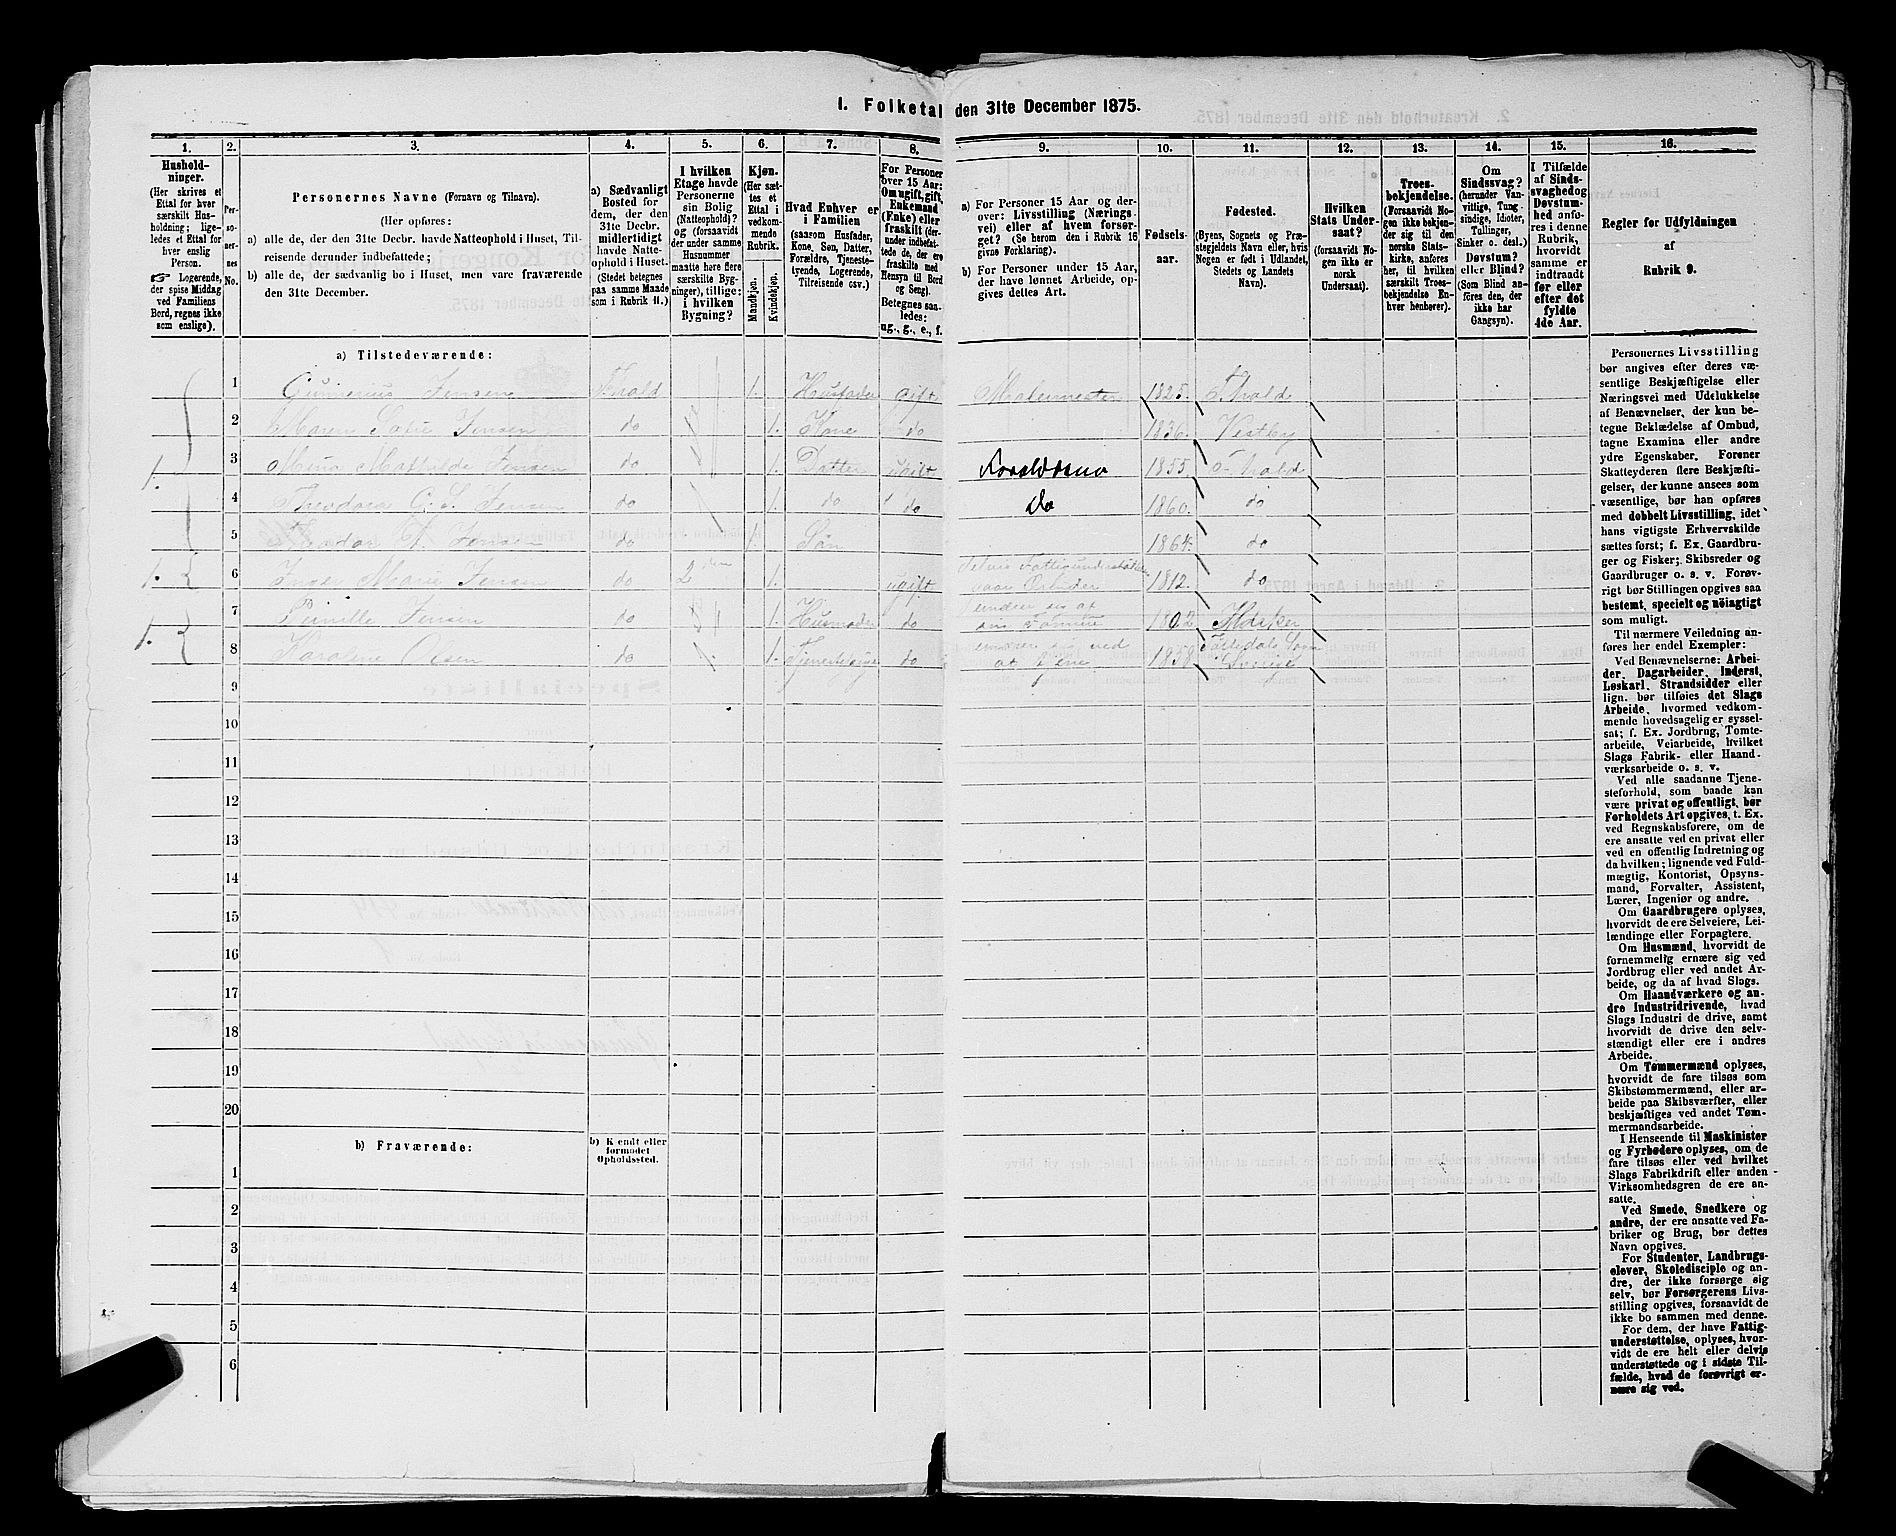 1. Folketal den 31te December 1875.
1.
Hushold-
ninger.
(Her skrives et
Ettal for hver
særskilt Hus-
holdning; lige-
ledes et Ettal for
hver enslig
Person.
☞ Logerende,
der spise Middag
ved Familiens
Bord, regnes ikke
som enslige).
2.
Per-
so-
ner-
nes
No.
3.
Personernes Navne (Fornavn og Tilnavn).
(Her opføres:
a) alle de, der den 31te Decbr. havde Natteophold i Huset, Til-
reisende derunder indbefattede;
b) alle de, der sædvanlig bo i Huset, men vare fraværende
den 31te December.
4.
a) Sædvanligt
Bosted for
dem, der den
31te Decbr.
midlertidigt
havde Natte-
ophold i Huset.
(Stedet betegnes
paa samme Maade
som i Rubrik 11.)
5.
I hvilken
Etage havde
Personerne
sin Bolig
(Natteophold)?
og (forsaavidt
der under samme
Husnummer
maatte høre flere
særskilte Byg-
ninger), tillige:
i hvilken
Bygning?
6.
Kjøn.
(Her sæt-
tes et
Ettal i
vedkom-
mende
Rubrik.
Mandkjøn.
Kvindekjøn.
7.
Hvad Enhver er
i Familien
(saasom Husfader,
Kone, Søn, Datter,
Forældre, Tjeneste-
tyende, Logerende,
Tilreisende osv.)
8.
For Personer
over 15 Aar:
Om ugift, gift,
Enkemand
(Enke) eller
fraskilt (der-
under indbefat-
tede de, der ere
fraskilte med
Hensyn til Bord
og Seng).
Betegnes saa-
ledes:
ug., g., e., f.
9.
a) For Personer 15 Aar og der-
over: Livsstilling (Nærings-
vei) eller af hvem forsør-
get? (Se herom den i Rubrik 16
givne Forklaring).
b) For Personer under 15 Aar,
der have lønnet Arbeide, op-
gives dettes Art.
10.
Fødsels-
aar.
11.
Fødested.
(Byens, Sognets og Præ-
stegjeldets Navn eller, hvis
Nogen er født i Udlandet,
Stedets og Landets
Navn).
12.
Hvilken
Stats Under-
saat?
(forsaavidt No-
gen ikke er
norsk
Undersaat).
13.
Troes-
bekjendelse.
(Forsaavidt No-
gen ikke bekjen-
der sig til den
norske Stats-
kirke, anføres
her, til hvilken
særskilt Troes-
bekjendelse En-
hver henhører).
14.
Om
Sindssvag?
(herunder Van-
vittige, Tung-
sindige, Idioter,
Tullinger,
Sinker o. desl.)
Døvstum?
eller Blind?
(Som Blind an-
føres den, der
ikke har
Gangsyn).
15.
I Tilfælde
af Sinds-
svaghed og
Døvstum-
hed anfø-
res i denne
Rubrik,
hvorvidt
samme er
indtraadt
før eller
efter det
fyldte
4de Aar.
16.
Regler for Udfyldningen
af
Rubrik 9.
a) Tilstedeværende:
1 Gunerius Jensen F.hald 1. Husfader gift Malermester 1825. F.hald
2 Maren Sofie Jensen do 1. Kone do 1836. Vestby
1. 3 Mathilde Jensen do 1. Datter ugift 1855. F.hald
4 Theodora C. S. Jensen do do do do 1860. do
5 Jensen do 1. Søn 1864. do
1. 6 Inger Marie Jensen do 2den 1. ugift 1812. do
1. 7 Pernille Jensen do 1. Husmoder do 1802
8 Karoline Olsen do 1. Tjenestepige do 1858
9
10
11
12
13
14
15
16
17
18
19
20
b) Fraværende:
b) Kjendt eller
formodet
Opholdssted.
1
2
3
4
5
6
Personernes Livsstilling
bør angives efter deres væ-
sentlige Beskjæftigelse eller
Næringsvei med Udelukkelse
af Benævnelser, der kun be-
tegne Beklædelse af Ombud,
tagne Examina eller andre
ydre Egenskaber. Forener
Skatteyderen flere Beskjæfti-
gelser, der kunne ansees som
væsentlige, bør han opføres
med dobbelt Livsstilling, idet
hans vigtigste Erhvervskilde
sættes først; f. Ex. Gaardbru-
ger og Fisker; Skibsreder og
Gaardbruger o. s. v. Forøv-
rigt bør Stillingen opgives saa
bestemt, specielt og nøiagtigt
som muligt.
Til nærmere Veiledning an-
føres her endel Exempler:
Ved Benævnelserne: Arbei-
der, Dagarbeider, Inderst,
Løskarl, Strandsidder eller
lign. bør tilføies det Slags
Arbeide, hvormed vedkom-
mende hovedsagelig er syssel-
sat; f. Ex. Jordbrug, Tomte-
arbeide, Veiarbeide, hvilket
Slags Fabrik- eller Haand-
værksarbeide o. s. v.
Ved alle saadanne Tjene-
steforhold, som baade kan
være privat og offentligt, bør
Forholdets Art opgives, t. Ex.
ved Regnskabsførere, om de
ere ansatte ved en privat eller
ved en offentlig Indretning og
da hvilken; lignende ved Fuld-
mægtig, Kontorist, Opsyns-
mand, Forvalter, Assistent,
Lærer, Ingeniør og andre.
Om Gaardbrugere oplyses,
hvorvidt de ere Selveiere, Lei-
lændinge eller Forpagtere.
Om Husmænd, hvorvidt de
fornemmelig ernære sig ved
Jordbrug eller ved andet Ar-
beide, og da af hvad Slags.
Om Haandværkere og an-
dre Industridrivende, hvad
Slags Industri de drive, samt
hvorvidt de drive den selv-
stændigt eller ere i andres
Arbeide.
Om Tømmermænd oplyses,
hvorvidt de fare tilsøs som
Skibstømmermænd, eller ar-
beide paa Skibsværfter, eller
beskjæftiges ved andet Tøm-
mermandsarbeide.
I Henseende til Maskinister
og Fyrbødere oplyses, om de
fare tilsøs eller ved hvilket
Slags Fabrikdrift eller anden
Virksomhedsgren de ere an-
satte.
Ved Smede, Snedkere og
andre, der ere ansatte ved Fa-
briker og Brug, bør dettes
Navn opgives.
For Studenter, Landbrugs-
elever, Skoledisciple og an-
dre, der ikke forsørge sig
selv, bør Forsørgerens Livs-
stilling opgives, forsaavidt de
ikke bo sammen med denne.
For dem, der have Fattig-
understøttelse, oplyses, hvor-
vidt de ere helt eller delvis
understøttede og i sidste Til-
fælde, hvad de forøvrigt er-
nære sig ved.